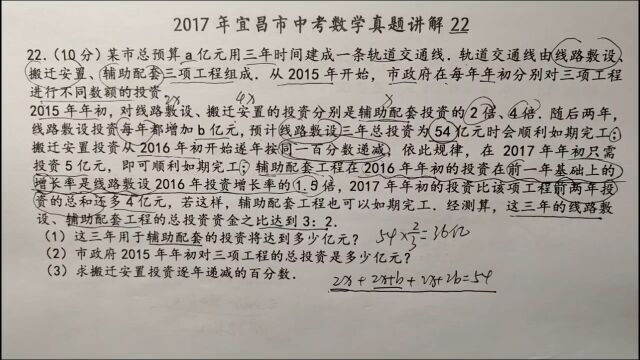 2017年宜昌市中考数学真题讲解 22
22.(10分)某市总预算a亿元用三年时间建成一条轨道交通线.轨道交通线由线路敷设、
搬迁安置、辅助配套三项工程组成.从2015年开始,市政府在每年年初分别对三项工程
进行不同数额的投资.
2x 4x x
2015年年初,对线路敷设、搬迁安置的投资分别是辅助配套投资的2倍、4倍.随后两年,
线路敷设投资每年都增加b亿元,预计线路敷设三年总投资为54亿元时会顺利如期完工;
搬迁安置投资从2016年初开始逐年按同一百分数递减,依此规律,在2017年年初只需
投资5亿元,即可顺利如期完工;辅助配套工程在2016年年初的投资在前一年基础上的
增长率是线路敷设2016年投资增长率的1.5倍,2017年年初的投资比该项工程前两年投
资的总和还多4亿元,若这样,辅助配套工程也可以如期完工.经测算,这三年的线路敷
设、辅助配套工程的总投资资金之比达到3:2.
(1)这三年用于辅助配套的投资将达到多少亿元? 54×2/3=36亿
(2)市政府2015年年初对三项工程的总投资是多少亿元?
(3)求搬迁安置投资逐年递减的百分数. 2x+2x+b+2x+2b=54